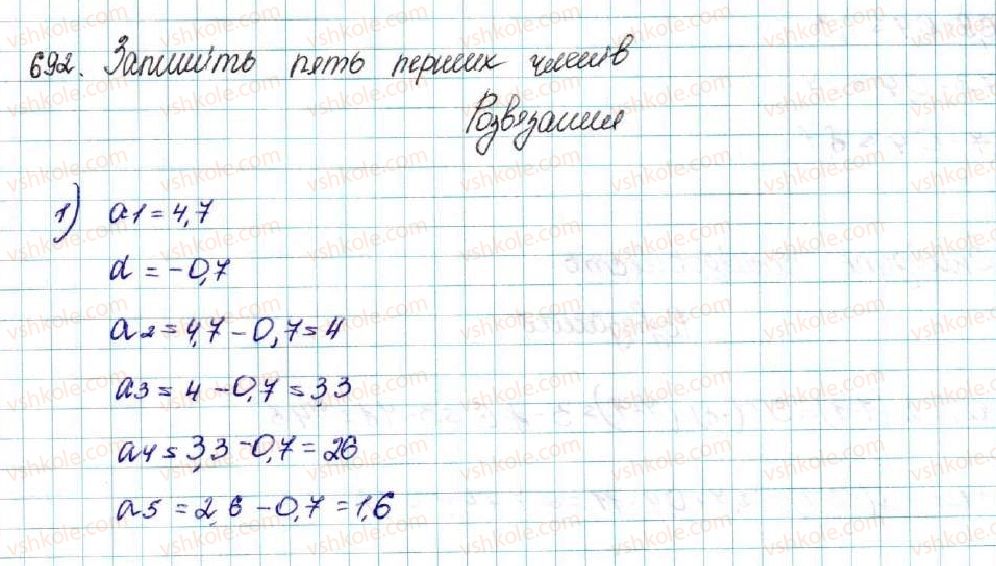 692. Запишіть пять перших членів
Розвязання
1) a1 = 4,7
d = -0,7
a2 = 4,7 - 0,7 = 4
a3 = 4 - 0,7 = 3,3
a4 = 3,3 - 0,7 = 26
a5 = 2,6 - 0,7 = 1,6